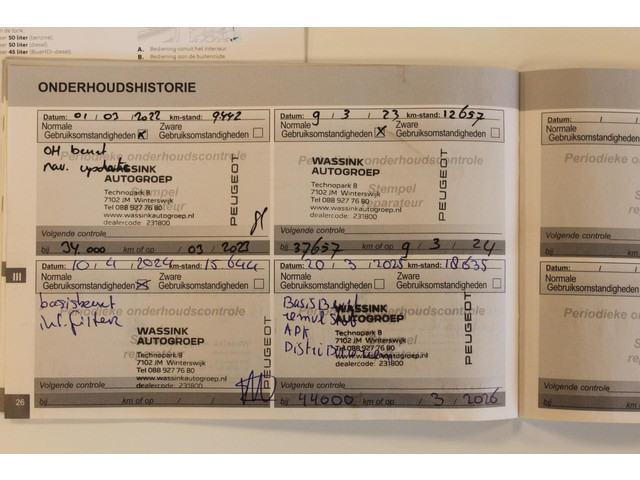 de tank.
50 liter (benzine).
50 liter (diesel).
45 liter (BlueHDi-diesel).
A. Bediening vanuit het interieur
B. Bediening aan de buitenzijde
ONDERHOUDSHISTORIE
Datum: 01 / 03 / 2022 km-stand: 9442
Normale Gebruiksomstandigheden
Zware Gebruiksomstandigheden
OH beurt
nav. update
Periodieke onderhoudscontrole
WASSINK
AUTOGROEP
Technopark 8
7102 JM Winterswijk
Tel 088 927 76 80
www.wassinkautogroep.nl
dealercode: 231800
PEUGEOT
Volgende controle
bij 34.000 km of op / 03 / 2023
Datum: 9 / 3 / 23 km-stand: 12657
Normale Gebruiksomstandigheden
Zware Gebruiksomstandigheden
Periodieke onderhoudscontrole
Stempel
reparateur
WASSINK
AUTOGROEP
Technopark 8
7102 JM Winterswijk
Tel 088 927 76 80
www.wassinkautogroep.nl
dealercode: 231800
PEUGEOT
Volgende controle
bij 37657 km of op 9 / 3 / 24
Datum: 10 / 4 / 2024 km-stand: 15644
Normale Gebruiksomstandigheden
Zware Gebruiksomstandigheden
basisbeurt
int. filter
WASSINK
AUTOGROEP
Technopark 8
7102 JM Winterswijk
Tel 088 927 76 80
www.wassinkautogroep.nl
dealercode: 231800
PEUGEOT
Volgende controle
bij km of op / /
Datum: 20 / 3 / 2025 km-stand: 18635
Normale Gebruiksomstandigheden
Zware Gebruiksomstandigheden
Basis Beurt
remvlstof
APK
WASSINK
AUTOGROEP
Technopark 8
7102 JM Winterswijk
Tel 088 927 76 80
www.wassinkautogroep.nl
dealercode: 231800
PEUGEOT
Volgende controle
bij 44000 km of op / 3 / 2026
III
26
Datum: / /
Normale
Gebruiksomstandigheden
Periodieke
Volgende controle
bij
Datum: / /
Normale
Gebruiksomstandigheden
Volgende controle
bij